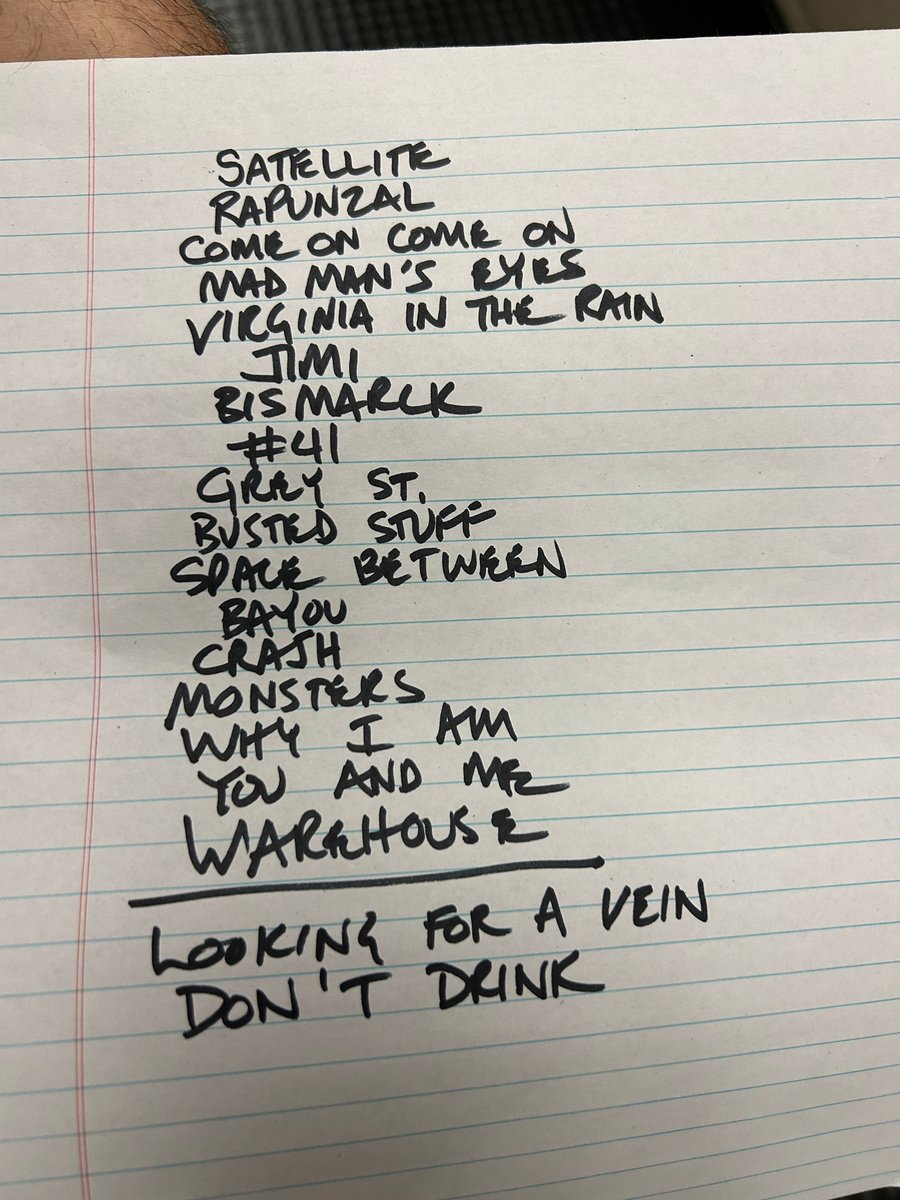 SATELLITE
RAPUNZAL
COME ON COME ON
MAD MAN'S EYES
VIRGINIA IN THE RAIN
JIMI
BISMARCK
#41
GREY ST.
BUSTED STUFF
SPACE BETWEEN
BAYOU
CRASH
MONSTERS
WHY I AM
YOU AND ME
WAREHOUSE
LOOKING FOR A VEIN
DON'T DRINK